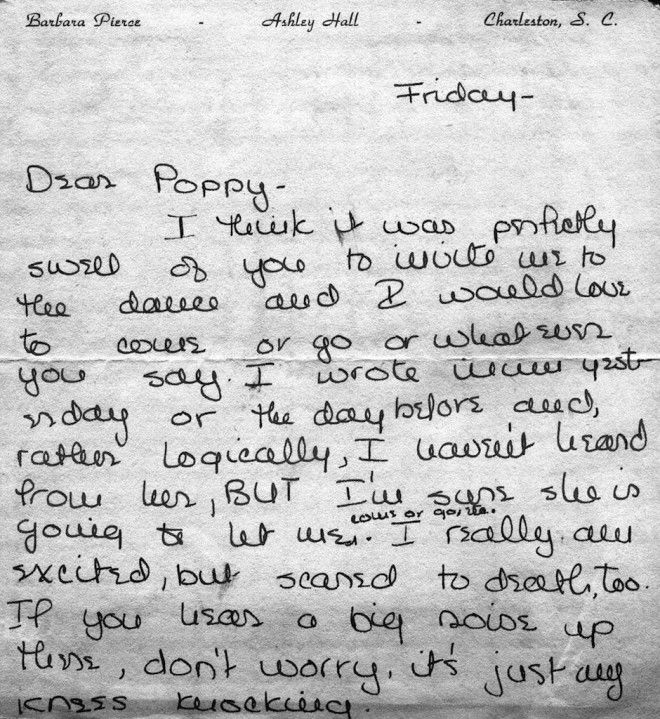 Barbara Pierce - Ashley Hall - Charleston, S. C.
Friday-
Dear Poppy-
I think it was perfectly
swell of you to invite me to
the dance and I would love
to come or go or whatever
you say. I wrote Mum yest-
erday or the day before and,
rather logically, I haven't heard
from her, BUT I'm sure she is
going to let me come or go, etc. I really am
excited, but scared to death, too.
If you hear a big noise up
there, don't worry, it's just my
knees knocking.